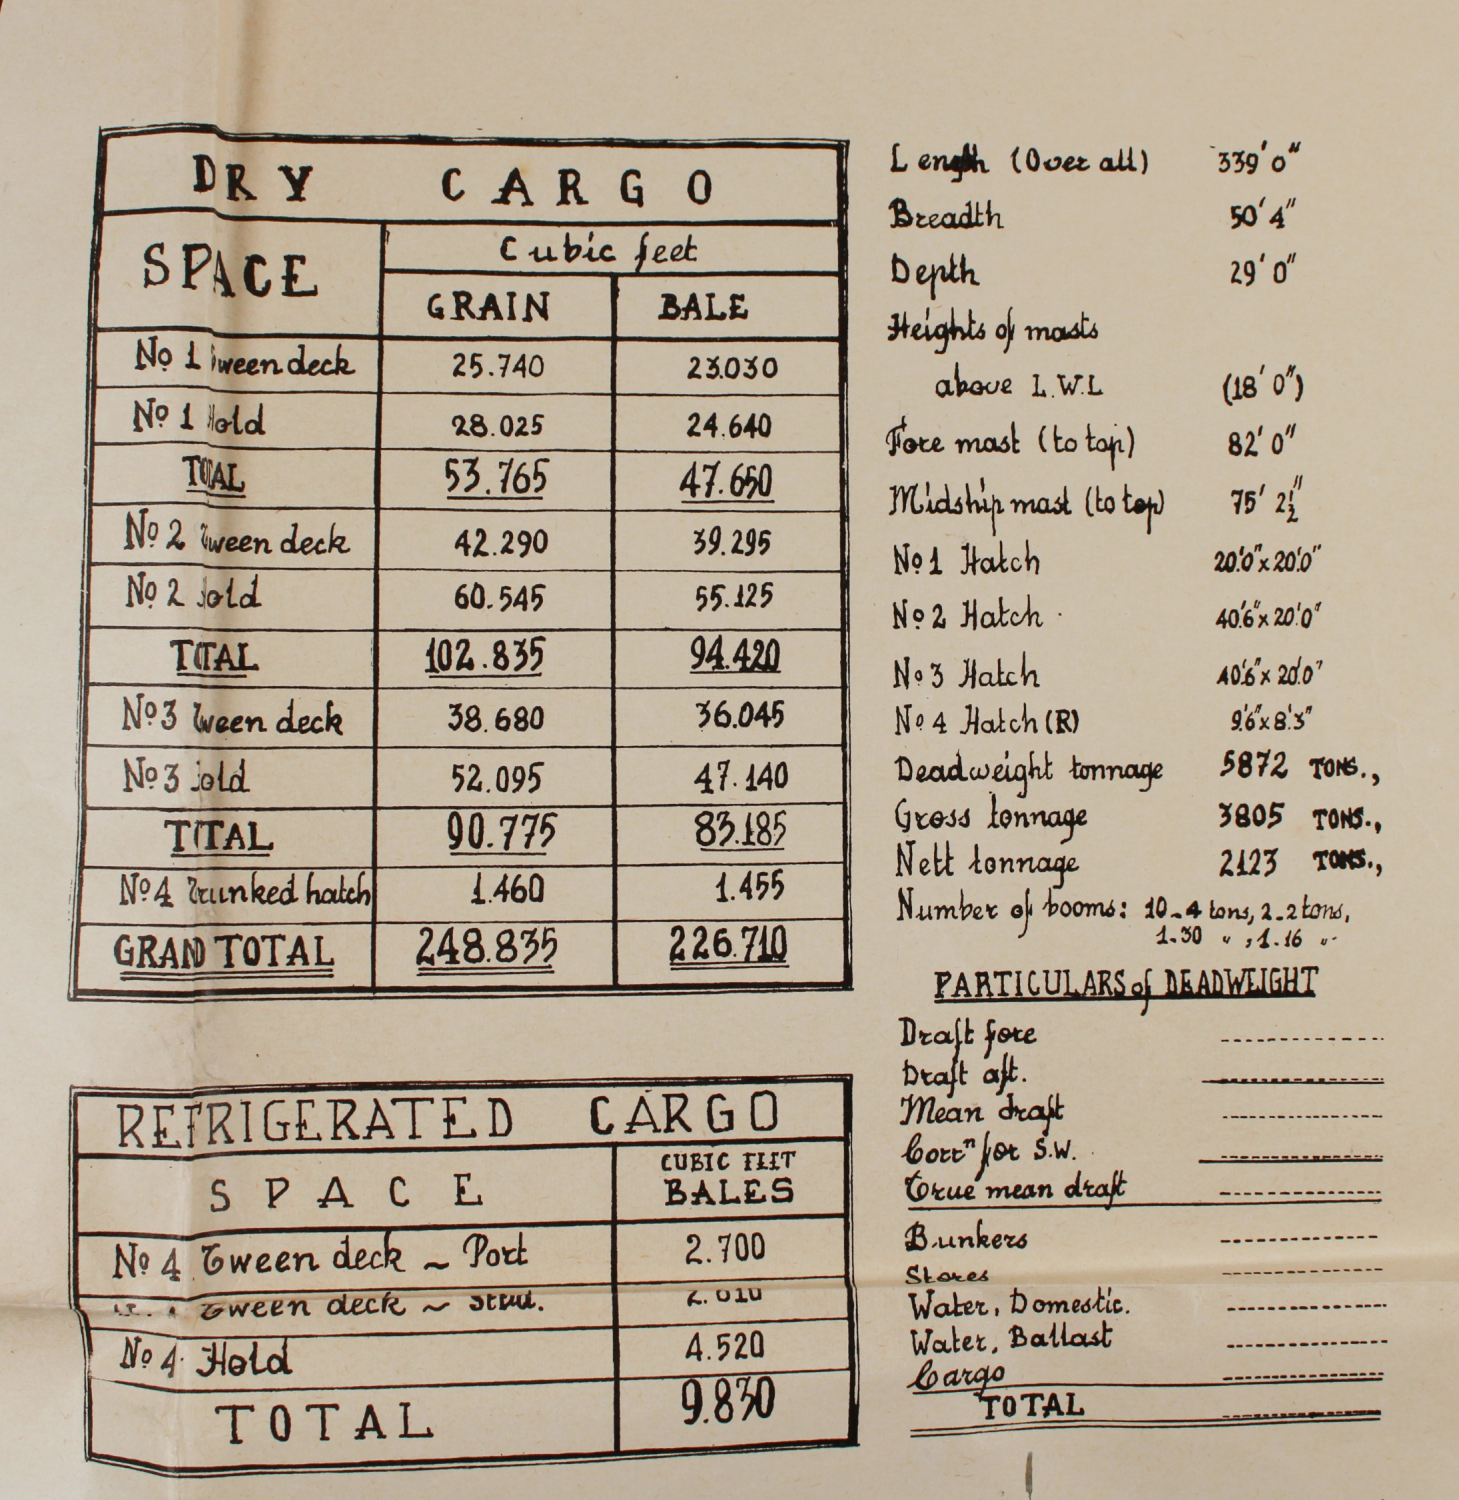 DRY CARGO
SPACE
Cubic feet
GRAIN BALE
No 1 Tween deck 25.740 23.030
No 1 Hold 28.025 24.640
TOTAL 53.765 47.650
No 2 Tween deck 42.290 39.295
No 2 Hold 60.545 55.125
TOTAL 102.835 94.420
No 3 Tween deck 38.680 36.045
No 3 Hold 52.095 47.140
TOTAL 90.775 83.185
No 4 Trunked hatch 1.460 1.455
GRAND TOTAL 248.835 226.710
REFRIGERATED CARGO
SPACE
CUBIC FEET
BALES
No 4 Tween deck ~ Port 2.700
Tween deck ~ 2.610
No 4 Hold 4.520
TOTAL 9.830
Length (Over all) 339' 0"
Breadth 50' 4"
Depth 29' 0"
Heights of masts
above L.W.L (18' 0")
Fore mast (to top) 82' 0"
Midship mast (to top) 75' 2½"
No 1 Hatch 20'0"x20'0"
No 2 Hatch 40'6"x20'0"
No 3 Hatch 40'6"x20'0"
No 4 Hatch (R) 9'6"x8'3"
Deadweight tonnage 5872 TONS.,
Gross tonnage 3805 TONS.,
Nett tonnage 2123 TONS.,
Number of booms: 10-4 tons, 2-2 tons,
1-30 " , 1-16 "
PARTICULARS of DEADWEIGHT
Draft fore
Draft aft.
Mean draft
Corrⁿ for S.W.
True mean draft
Bunkers
Stores
Water, Domestic.
Water, Ballast
Cargo
TOTAL